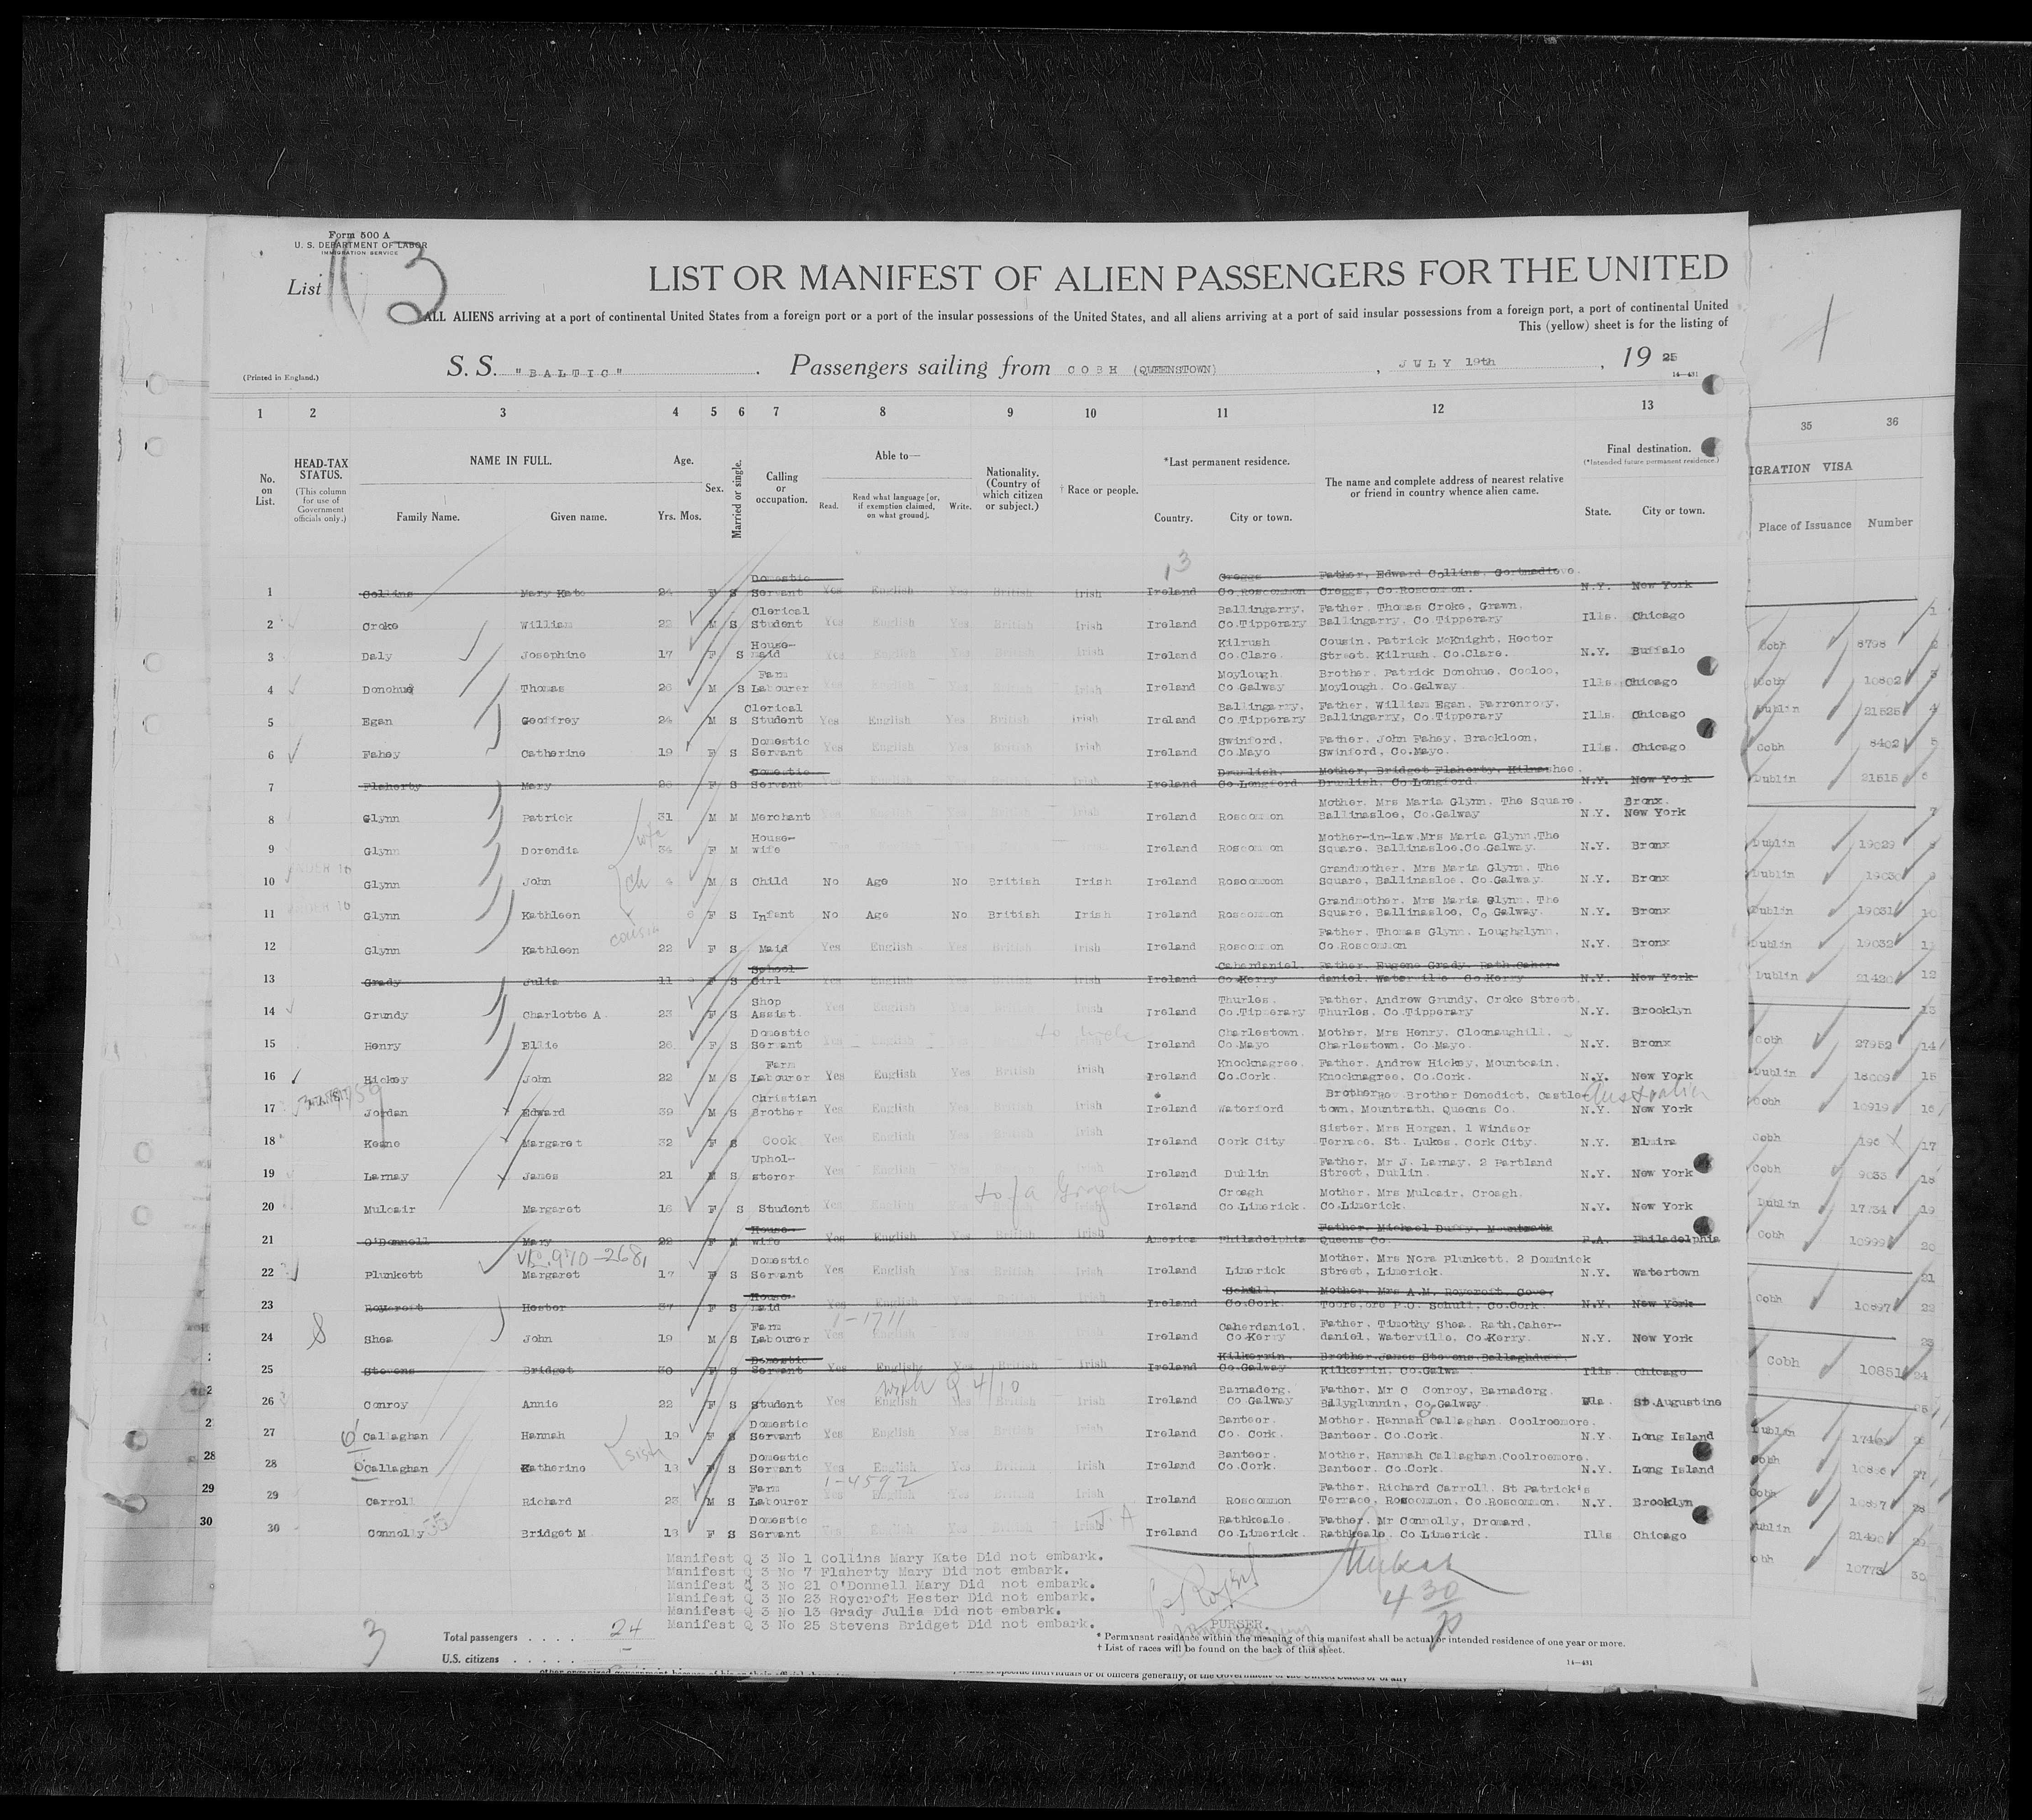 Form 500 A
U. S. DEPARTMENT OF LABOR
IMMIGRATION SERVICE
List 3
LIST OR MANIFEST OF ALIEN PASSENGERS FOR THE UNITED
ALL ALIENS arriving at a port of continental United States from a foreign port or a port of the insular possessions of the United States, and all aliens arriving at a port of said insular possessions from a foreign port, a port of continental United
This (yellow) sheet is for the listing of
(Printed in England.)
S. S. "BALTIC". Passengers sailing from COBH (QUEENSTOWN), JULY 19th, 1925
14—431
1 2 3 4 5 6 7 8 9 10 11 12 13 35 36
No. on List.
HEAD-TAX STATUS.
(This column for use of Government officials only.)
NAME IN FULL.
Family Name. Given name.
Age.
Yrs. Mos.
Sex.
Married or single.
Calling or occupation.
Able to—
Read. Read what language [or, if exemption claimed, on what ground]. Write.
Nationality. (Country of which citizen or subject.)
† Race or people.
*Last permanent residence.
Country. City or town.
The name and complete address of nearest relative or friend in country whence alien came.
Final destination.
(*Intended future permanent residence.)
State. City or town.
IGRATION VISA
Place of Issuance Number
1 Collins Mary Kate 24 F S Domestic Servant Yes English Yes British Irish Ireland Creggs Co.Roscommon Father, Edward Collins, Creggs, Co.Roscommon. N.Y. New York
2 Croke William 22 M S Clerical Student Yes English Yes British Irish Ireland Ballingarry, Co.Tipperary Father, Thomas Croke, Grawn, Ballingarry, Co.Tipperary Ills. Chicago Cobh 8798
3 Daly Josephine 17 F S House-maid Yes English Yes British Irish Ireland Kilrush Co.Clare. Cousin, Patrick McKnight, Hector Street, Kilrush. Co.Clare. N.Y. Buffalo Cobh 10802
4 Donohue Thomas 26 M S Farm Labourer Yes English Yes British Irish Ireland Moylough. Co.Galway Brother, Patrick Donohue, Cooloo, Moylough. Co.Galway Ills. Chicago Dublin 21525
5 Egan Geoffrey 24 M S Clerical Student Yes English Yes British Irish Ireland Ballingarry, Co.Tipperary Father, William Egan, Farrenrory, Ballingarry, Co.Tipperary Ills. Chicago Cobh 8402
6 Fahey Catherine 19 F S Domestic Servant Yes English Yes British Irish Ireland Swinford, Co.Mayo Father, John Fahey, Brackloon, Swinford, Co.Mayo. Ills. Chicago Dublin 21515
7 Flaherty Mary F S Domestic Servant English Ireland Drumlish. Co.Longford. Mother, Bridget Flaherty, Drumlish, Co.Longford. N.Y. New York
8 Glynn Patrick 31 M M Merchant Ireland Roscommon Mother, Mrs Maria Glynn, The Square. Ballinasloe, Co.Galway N.Y. Bronx. New York Dublin 19029
9 Glynn Dorendia 34 F M House-wife wife Ireland Roscommon Mother-in-law,Mrs Maria Glynn,The Square. Ballinasloe.Co.Galway. N.Y. Bronx Dublin 19030
10 UNDER 16 Glynn John M S Child ch No Age No British Irish Ireland Roscommon Grandmother, Mrs Maria Glynn, The Square, Ballinasloe. Co.Galway N.Y. Bronx Dublin 19031
11 UNDER 16 Glynn Kathleen 6 F S Infant No Age No British Irish Ireland Roscommon Grandmother, Mrs Maria Glynn, The Square, Ballinasloe, Co Galway. N.Y. Bronx Dublin 19032
12 Glynn Kathleen cousin 22 F S Maid Yes English Yes British Irish Ireland Roscommon Father, Thomas Glynn, Loughglynn, Co.Roscommon N.Y. Bronx Dublin 21420
13 Grady Julia 11 F S School Girl Yes English Yes British Irish Ireland Caherdaniel. Co.Kerry Father, Eugene Grady, Rath,Caher-daniel, Waterville, Co.Kerry N.Y. New York
14 Grundy Charlotte A. 23 F S Shop Assist. Yes English Yes British Irish Ireland Thurles. Co.Tipperary Father, Andrew Grundy, Croke Street, Thurles. Co.Tipperary N.Y. Brooklyn Cobh 27952
15 Henry Ellie 26 F S Domestic Servant Yes English Yes British Irish Ireland Charlestown. Co.Mayo Mother, Mrs Henry, Cloonaughill. Charlestown, Co.Mayo. N.Y. Bronx Dublin 18009
16 Hickey John 22 M S Farm Labourer Yes English Yes British Irish Ireland Knocknagree. Co.Cork. Father, Andrew Hickey, Mountcain, Knocknagree, Co.Cork. N.Y. New York Cobh 10919
17 Jordan Edward 39 M S Christian Brother Yes English Yes British Irish Ireland Waterford Brother, Brother Benedict, Castletown, Mountrath, Queens Co. Australia N.Y. New York Cobh 196
18 Keane Margaret 32 F S Cook Yes English Yes British Irish Ireland Cork City Sister, Mrs Horgan, 1 Windsor Terrace, St. Lukes, Cork City. N.Y. Elmira Cobh 9033
19 Larnay James 21 M S Uphol-sterer Yes English Yes British Irish Ireland Dublin Father, Mr J. Larnay, 2 Portland Street, Dublin. N.Y. New York Dublin 17734
20 Mulcair Margaret 16 F S Student Yes English Yes British Irish Ireland Croagh Co.Limerick. Mother, Mrs Mulcair, Croagh. Co.Limerick. N.Y. New York Cobh 10999
21 O'Donnell Mary 22 F M House-wife Yes English Yes British Irish America Philadelphia Father, Michael Duffy, Mountrath Queens Co. P.A. Philadelphia
22 Plunkett Margaret 17 F S Domestic Servant Yes English Yes British Irish Ireland Limerick Mother, Mrs Nora Plunkett, 2 Dominick Street, Limerick. N.Y. Watertown Cobh 10897
23 Roycroft Hester 37 F S House-maid Yes English Yes British Irish Ireland Schull. Co.Cork. Mother, Mrs A.M. Roycroft, P.O. Schull, Co.Cork N.Y. New York
1-1711
24 Shea John 19 M S Farm Labourer Ireland Caherdaniel. Co.Kerry Father, Timothy Shea, Rath,Caher-daniel, Waterville, Co.Kerry. N.Y. New York Cobh 10851
25 Stevens Bridget 30 F S Domestic Servant Yes English Yes British Irish Ireland Kilkerrin. Co.Galway Brother,James Stevens,Ballaghduff, Kilkerrin, Co.Galway Ills. Chicago
26 Conroy Annie 22 F S Student Yes English Yes British Irish Ireland Barnaderg. Co.Galway Father, Mr C Conroy, Barnaderg. Ballyglunnin, Co.Galway Fla. St.Augustine Dublin
27 Callaghan Hannah 19 F S Domestic Servant Yes English Yes British Irish Ireland Banteer. Co. Cork. Mother, Hannah Callaghan, Coolroemore. Banteer. Co.Cork. N.Y. Long Island Cobh 10886
28 Callaghan Katherine 18 F S Domestic Servant Yes English Yes British Irish Ireland Banteer. Co.Cork. Mother, Hannah Callaghan,Coolroemore. Banteer. Co.Cork. N.Y. Long Island Cobh 10887
1-4592
29 Carroll Richard 23 M S Farm Labourer Yes English Ireland Roscommon Father, Richard Carroll, St Patrick's Terrace, Roscommon, Co.Roscommon. N.Y. Brooklyn Dublin 21490
30 Connolly Bridget M. 18 F S Domestic Servant Yes English Yes British Irish Ireland Rathkeale. Co.Limerick. Father, Mr Connolly, Dromard, Rathkeale. Co.Limerick. Ills. Chicago Cobh 10773
Manifest Q 3 No 1 Collins Mary Kate Did not embark.
Manifest Q 3 No 7 Flaherty Mary Did not embark.
Manifest Q 3 No 21 O'Donnell Mary Did not embark.
Manifest Q 3 No 23 Roycroft Hester Did not embark.
Manifest Q 3 No 13 Grady Julia Did not embark.
Manifest Q 3 No 25 Stevens Bridget Did not embark.
PURSER.
430
3
Total passengers . . . . 24
U.S. citizens . . . . .
* Permanent residence within the meaning of this manifest shall be actual or intended residence of one year or more.
† List of races will be found on the back of this sheet.
14—431